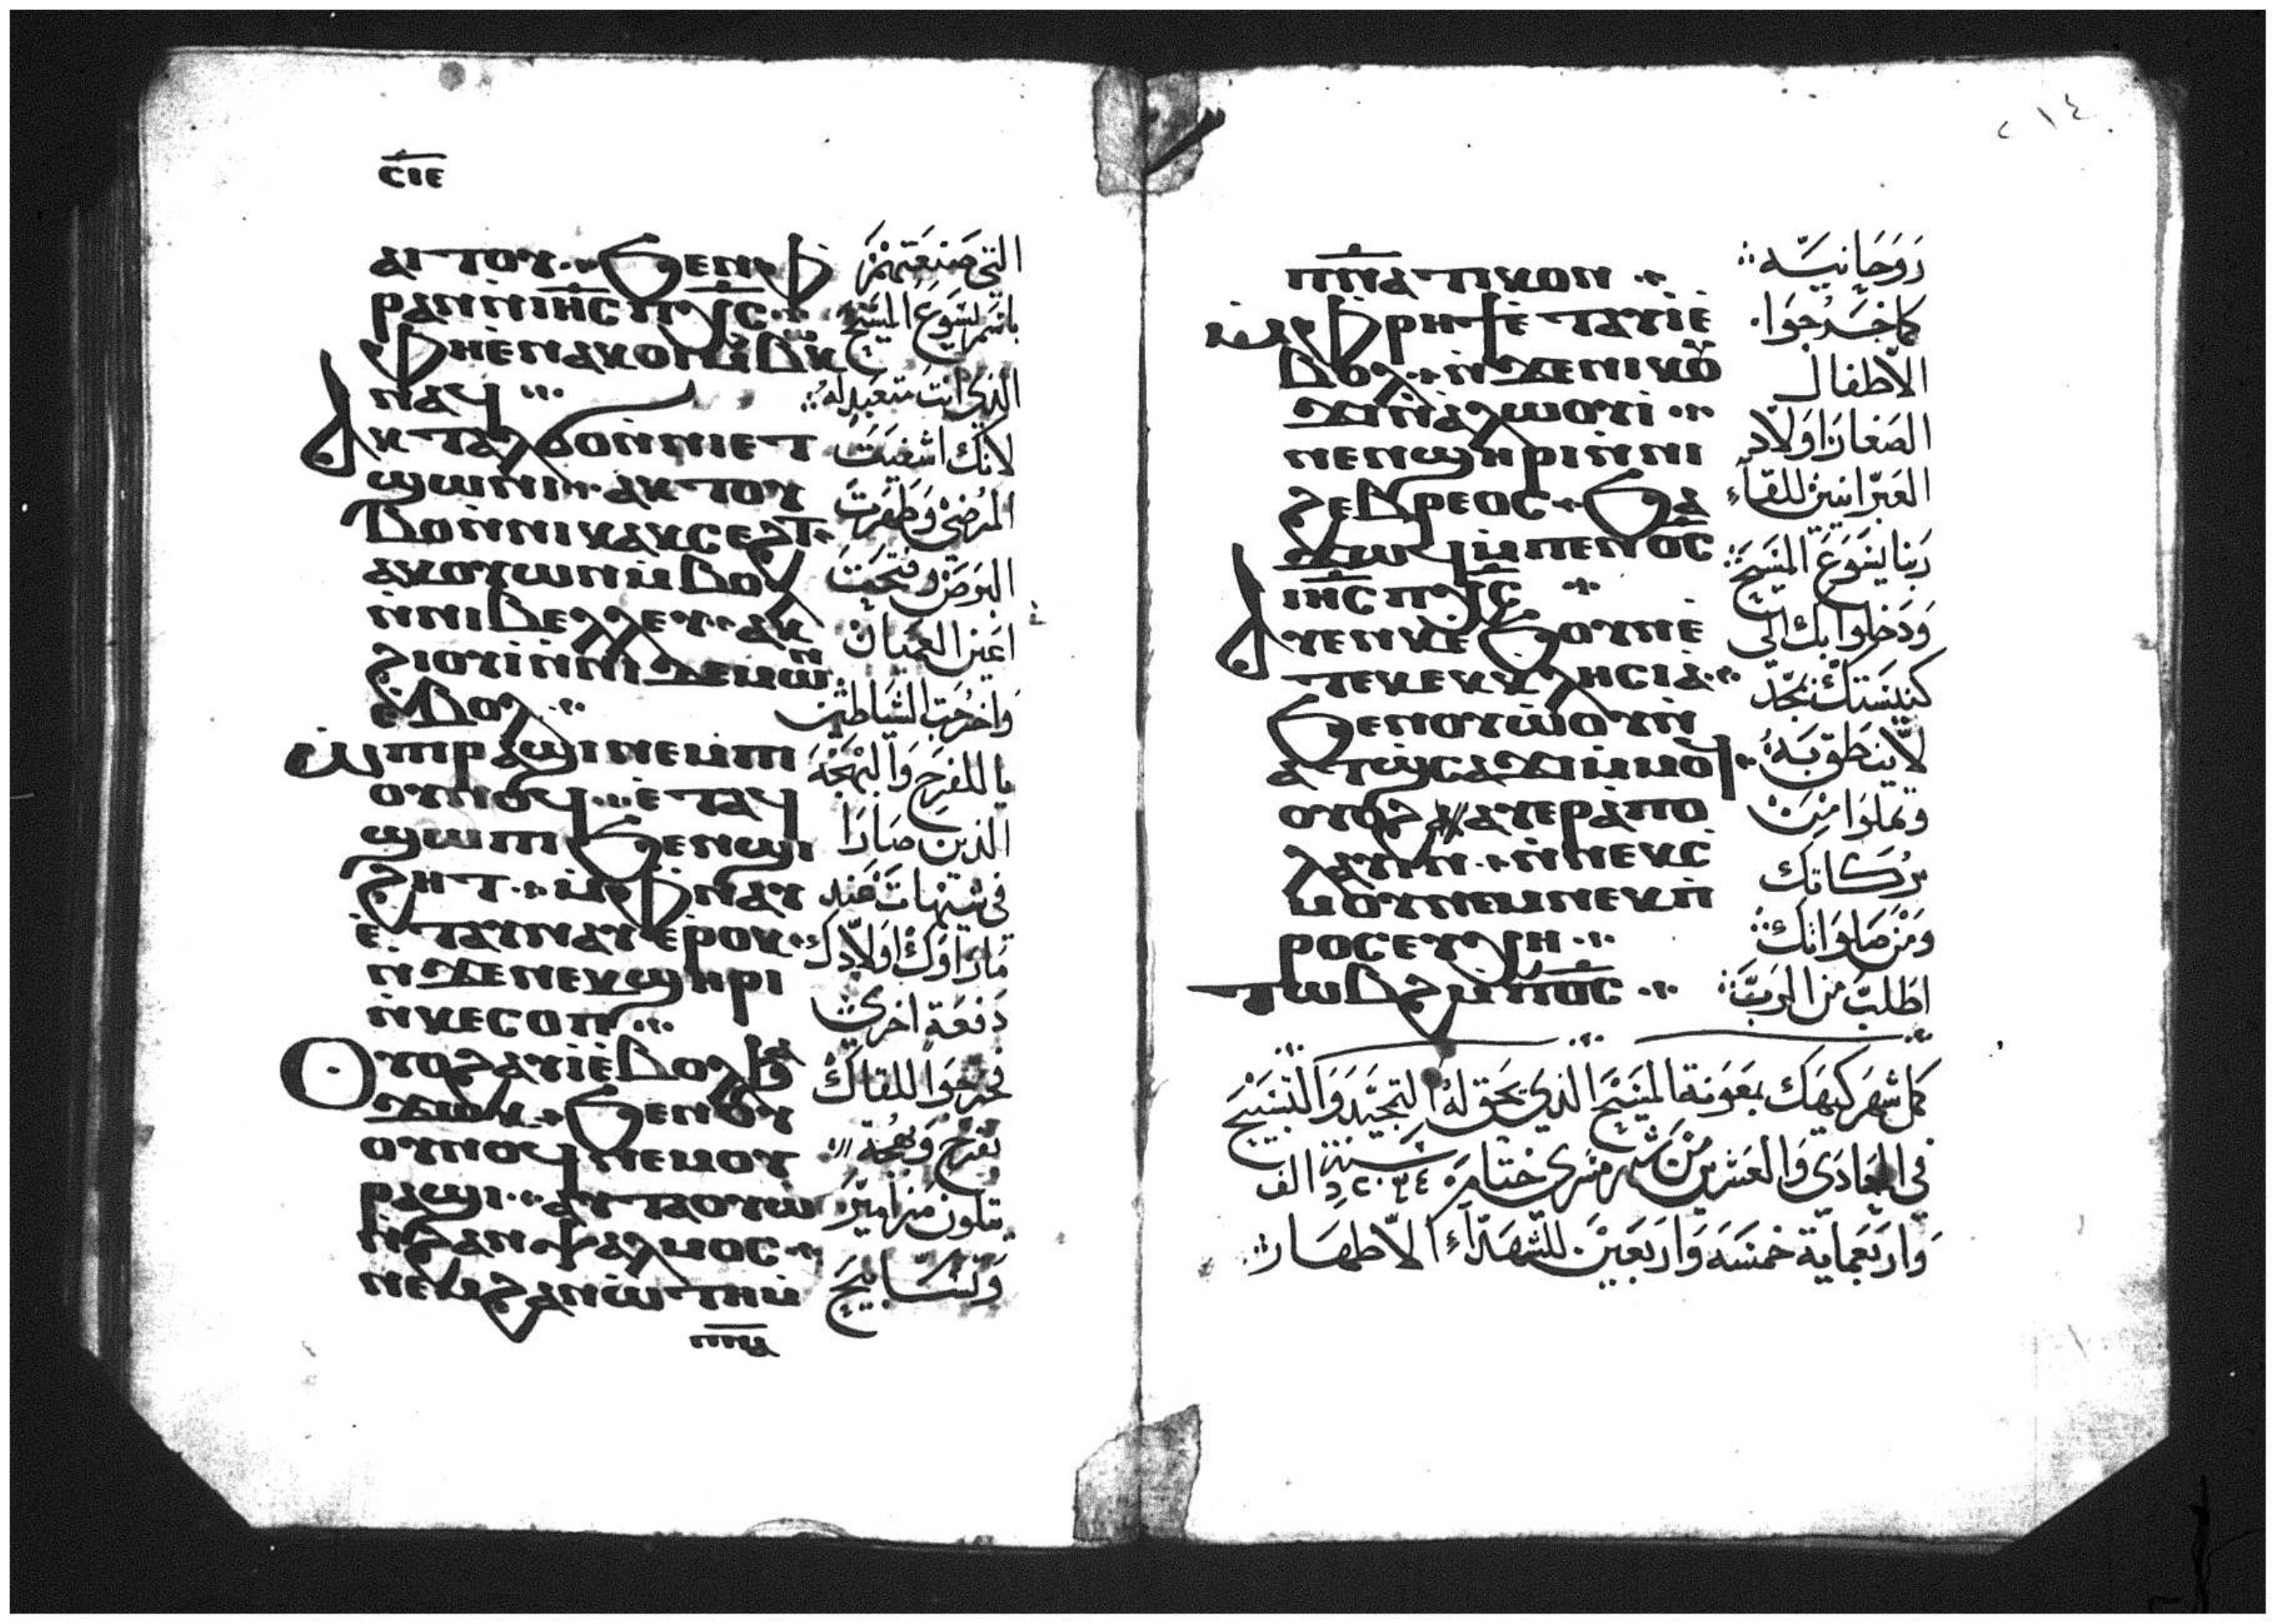 ⲥⲓⲉ
ⲁⲓⲧⲟⲩ ϧⲉⲛⲫ
ⲣⲁⲛⲛⲓⲏⲥ ⲡⲭⲥ
ⲫⲏⲉⲛⲁⲕⲟⲓⲙⲃⲱⲕ
ⲛⲁϥ
Ⲁⲕⲧⲁⲗϭⲟⲛⲛⲓⲉⲧ
ϣⲱⲛⲓ ⲁⲕⲧⲟⲩ
ⲃⲟⲛⲛⲓⲕⲁⲕⲥⲉϩⲧ
ⲁⲕⲟⲩⲱⲛⲙⲃⲟⲗ
ⲛⲛⲓⲃⲉⲗⲗⲉⲩ ⲁⲕ
ϩⲓⲟⲩⲓⲛⲛⲓⲇⲉⲙⲱⲛ
ⲉⲃⲟⲗ
ⲙⲡⲣⲁϣⲓⲛⲉⲙⲡⲓ
ⲟⲩⲛⲟϥ ⲉⲧⲁϥ
ϣⲱⲡⲓ ϧⲉⲛϣⲓ
ϩⲏⲧ ⲙⲫⲛⲁⲩ
ⲉⲧⲁⲩⲛⲁⲩⲉⲣⲟⲕ
ⲛϫⲉⲛⲉⲕϣⲏⲣⲓ
ⲛⲕⲉⲥⲟⲡ
Ⲟⲩⲟϩⲁⲩⲓⲉⲃⲟⲗϧⲁ
ϫⲱⲕ ϧⲉⲛⲟⲩ
ⲟⲩⲛⲟϥⲛⲉⲙⲟⲩ
ⲣⲁϣⲓ ⲁⲩⲧⲁⲟⲩⲱ
ⲛϩⲁⲛⲯⲁⲗⲙⲟⲥ
ⲛⲉⲙϩⲁⲛⲱⲧⲏⲙ
ⲡⲛⲁ
التى صنعتهم
باسم يسوع المسيح
الذى انت متعبد له
لانك اشفيت
المرضى وطهرت
البرص وفتحت
اعين العميان
واخرجت الشياطين
يا للفرح والبهجة
الذين صارا
فى شيهات عند
ما راوك اولادك
دفعة اخرى
فخرجوا للقاك
بفرح وبهجة
يتلون مزامير
وتسابيح
٢١٤
ⲡⲛⲁⲧⲓⲕⲟⲛ
ⲙⲫⲣⲏϯⲉⲧⲁⲩⲓⲉ
ⲃⲟⲗ ⲛϫⲉⲛⲓⲕⲟⲩ
ϫⲓⲛⲁⲗⲱⲟⲩⲓ
ⲛⲉⲛϣⲏⲣⲓⲛⲛⲓ
ϩⲉⲃⲣⲉⲟⲥ ϧⲁ
ϫⲱϥⲙⲡⲉⲛⲟⲥ
ⲓⲏⲥ ⲡⲭⲥ
Ⲁⲩⲉⲛⲕⲉϧⲟⲩⲛⲉ
ⲧⲉⲕⲉⲕⲕⲗⲏⲥⲓⲁ
ϧⲉⲛⲟⲩⲱⲟⲩⲛ
ⲁⲧϣⲥⲁϫⲓⲙⲙⲟϥ
ⲟⲩⲟϩ ⲁⲩⲉⲣⲁⲡⲟ
ⲗⲁⲩⲓⲛ ⲛⲛⲉⲕⲥ
ⲙⲟⲩⲛⲉⲙⲛⲉⲕⲡ
ⲣⲟⲥⲉⲩⲭⲏ
ⲧⲱⲃϩⲙⲡⲟⲥ
روحانية
كما خرجوا
الاطفال
الصغار اولاد
العبرانيين للقاء
ربنا يسوع المسيح
ودخلوا بك الى
كنيستك بمجد
لا ينطق به
وتملوا من
بركاتك
ومن صلواتك
اطلب من الرب
كمل شهر كيهك بمعونة المسيح الذى يحق له التمجيد والتسبيح
فى الحادى والعشرين من شهر مسرى ختام سنة الف
واربعماية خمسه واربعين للشهداء الاطهار